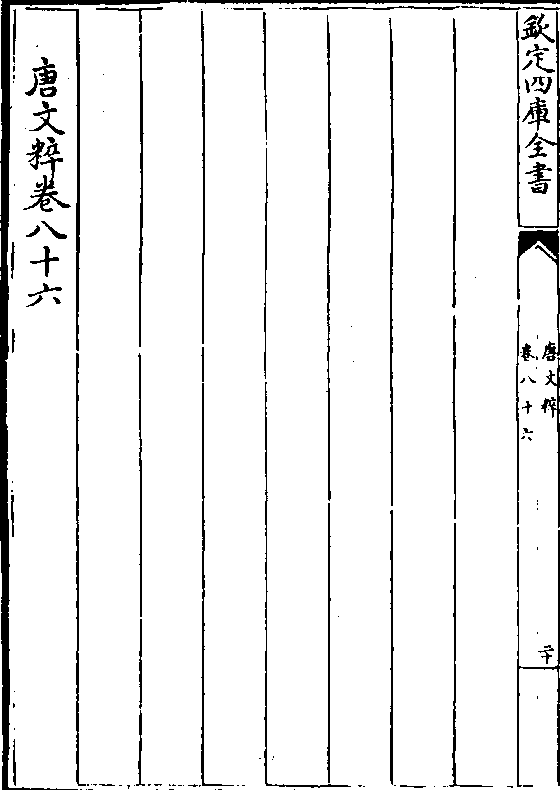 欽定四庫全書
唐文粹
卷八十六
二十
唐文粹卷八十六